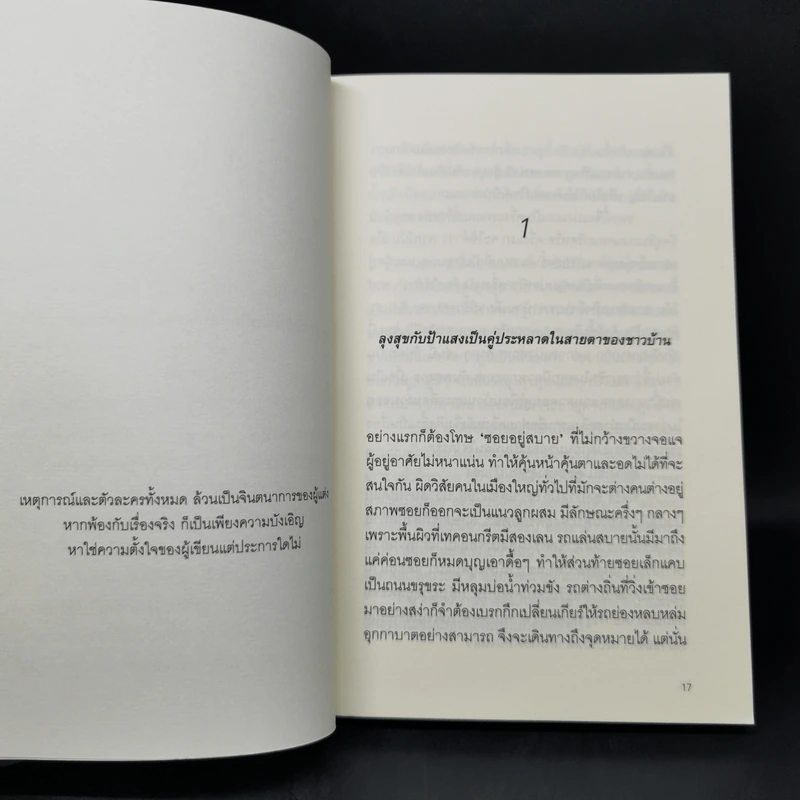 เหตุการณ์และตัวละครทั้งหมด ล้วนเป็นจินตนาการของผู้แต่ง
หากพ้องกับเรื่องจริง ก็เป็นเพียงความบังเอิญ
หาใช่ความตั้งใจของผู้เขียนแต่ประการใดไม่
1
ลุงสุขกับป้าแสงเป็นคู่ประหลาดในสายตาของชาวบ้าน
อย่างแรกก็ต้องโทษ ‘ซอยอยู่สบาย’ ที่ไม่กว้างขวางจอแจ
ผู้อยู่อาศัยไม่หนาแน่น ทำให้คุ้นหน้าคุ้นตาและอดไม่ได้ที่จะ
สนใจกัน ผิดวิสัยคนในเมืองใหญ่ทั่วไปที่มักจะต่างคนต่างอยู่
สภาพซอยก็ออกจะเป็นแนวลูกผสม มีลักษณะครึ่งๆ กลางๆ
เพราะพื้นผิวที่เทคอนกรีตมีสองเลน รถแล่นสบายนั้นมีมาถึง
แค่ค่อนซอยก็หมดบุญเอาดื้อๆ ทำให้ส่วนท้ายซอยเล็กแคบ
เป็นถนนขรุขระ มีหลุมบ่อน้ำท่วมขัง รถต่างถิ่นที่วิ่งเข้าซอย
มาอย่างสง่าก็จำต้องเบรกกึกเปลี่ยนเกียร์ให้รถย่องหลบหล่ม
อุกกาบาตอย่างสามารถ จึงจะเดินทางถึงจุดหมายได้ แต่นั่น
17